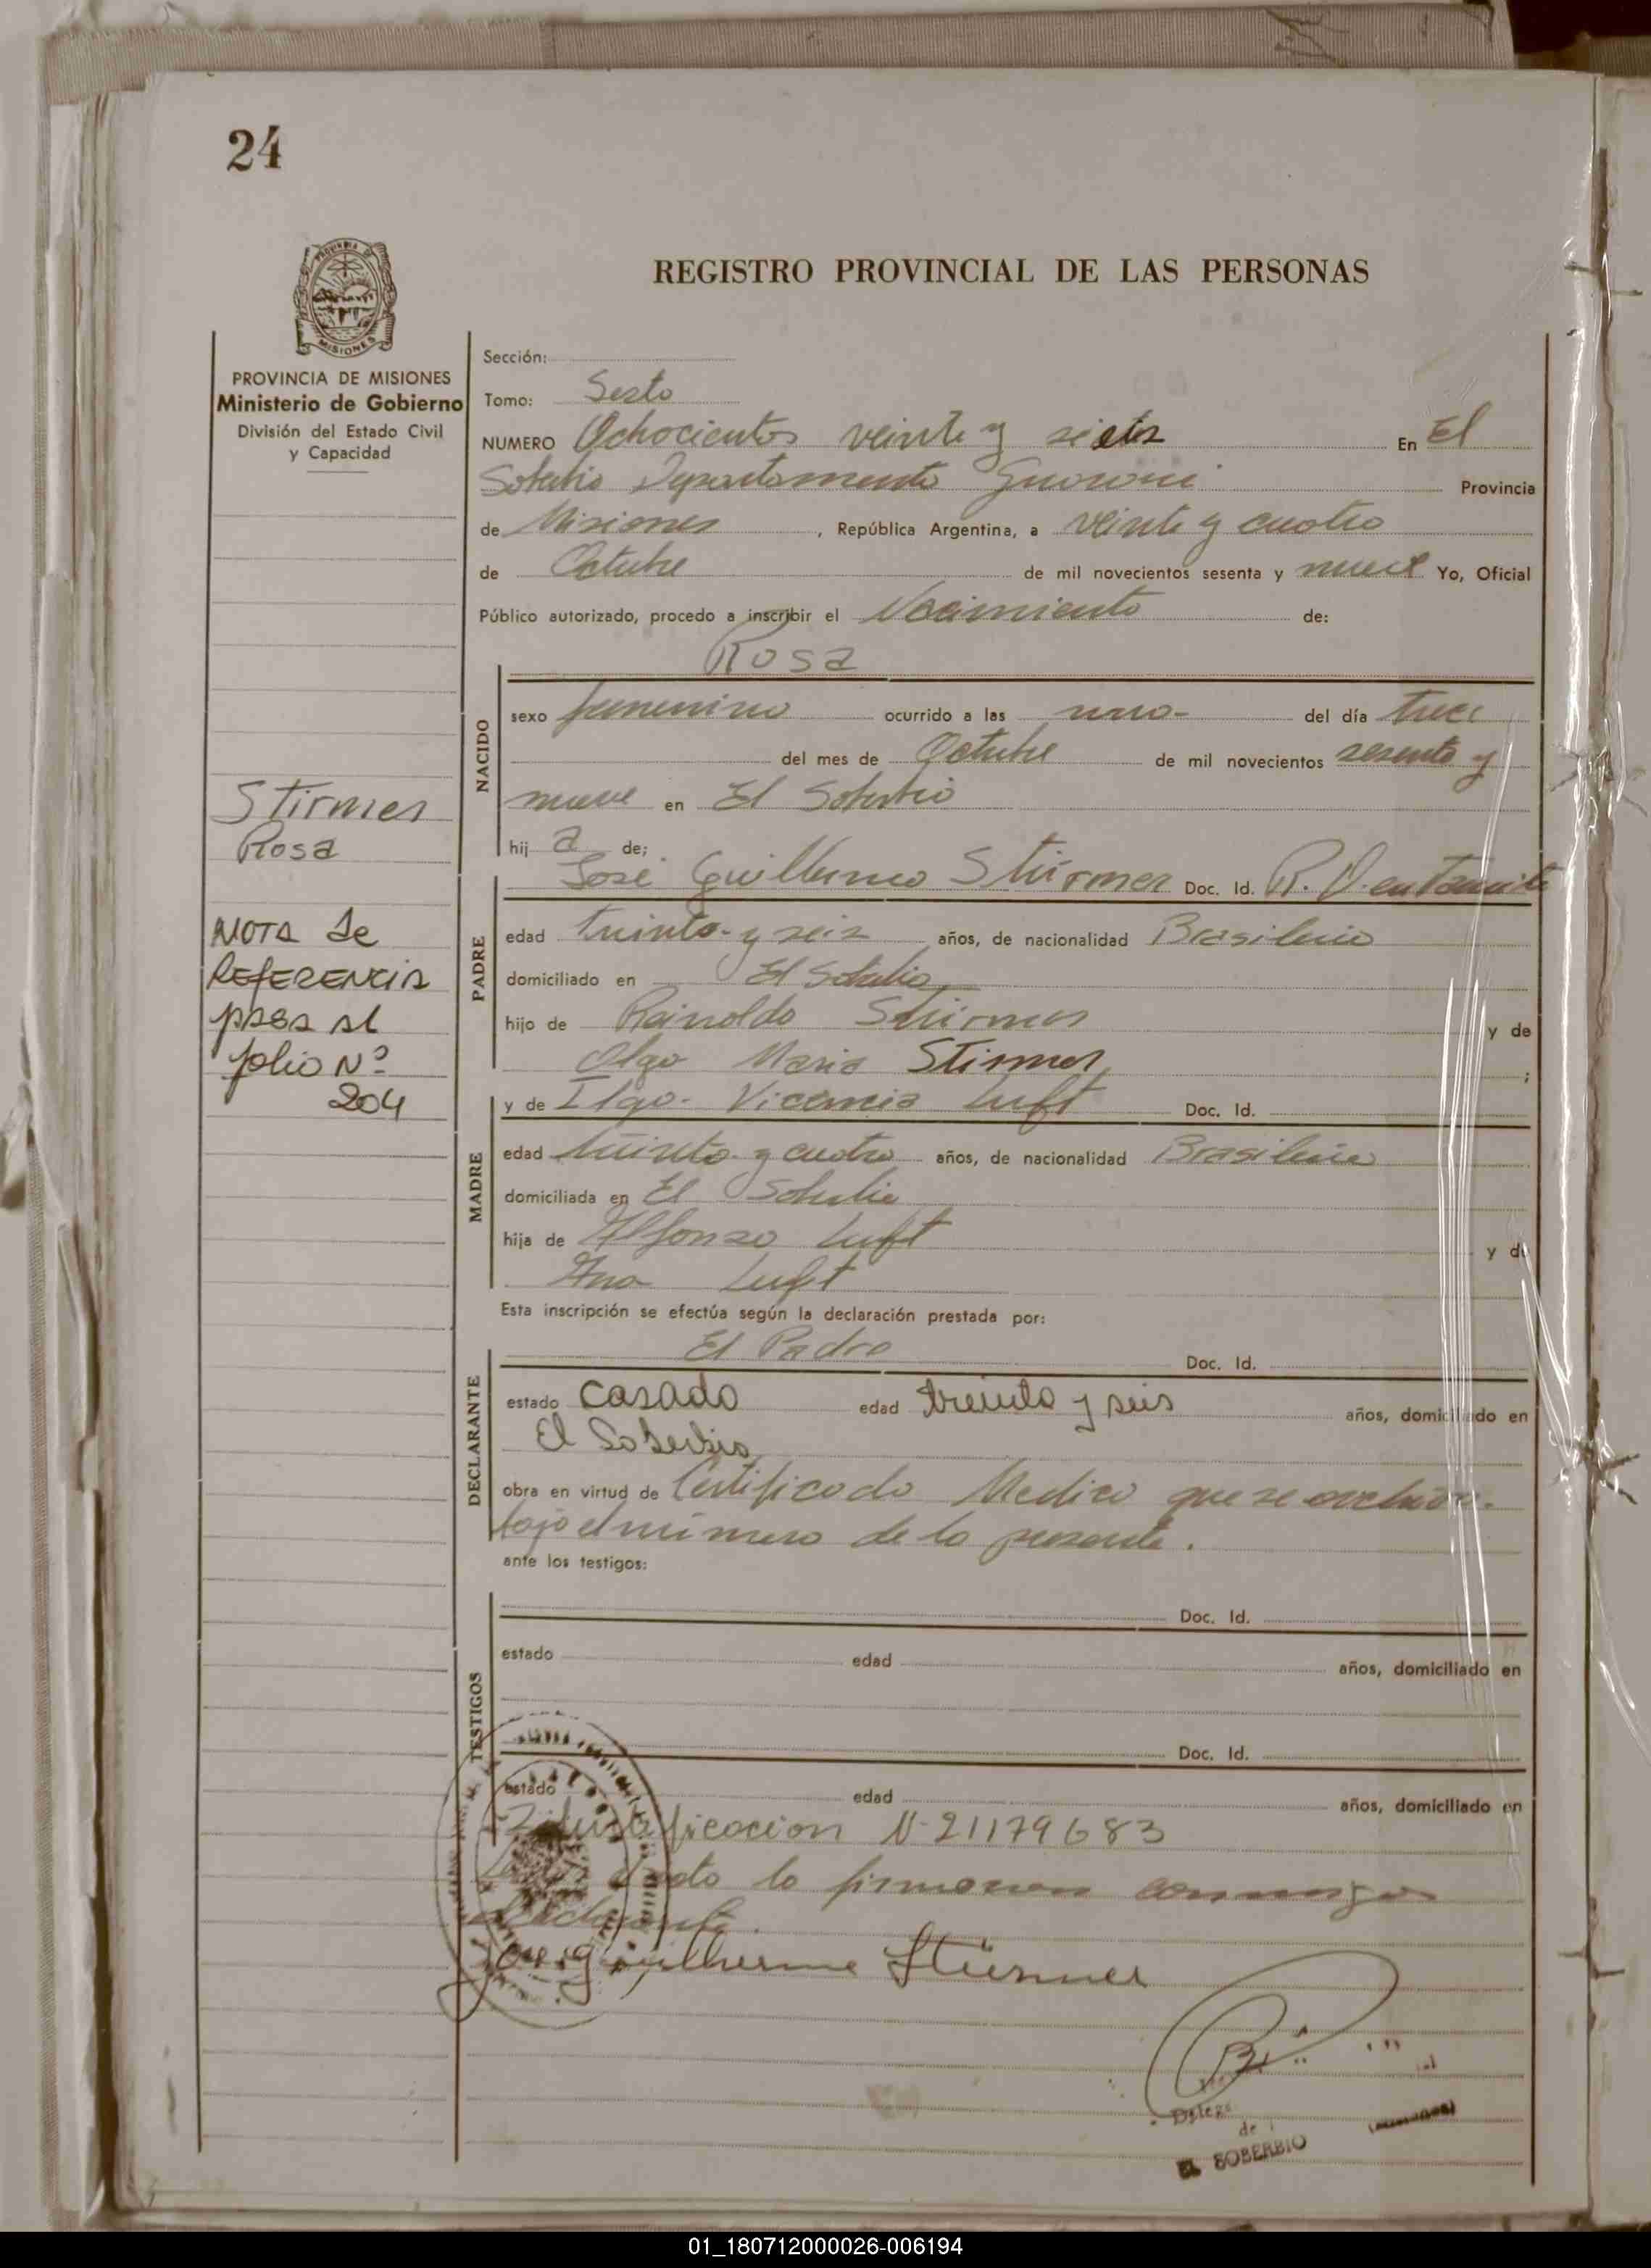 24
REGISTRO PROVINCIAL DE LAS PERSONAS
PROVINCIA DE MISIONES
Ministerio de Gobierno
División del Estado Civil
y Capacidad
Stirmer
Rosa
NOTA de
REFERENCIA
pasa al
folio Nº
204
Sección:
Tomo: Sexto
NUMERO Ochocientos veinte y siete En El
Soberbio Departamento Guarani Provincia
de Misiones, República Argentina, a veinte y cuatro
de Octubre de mil novecientos sesenta y nueve Yo, Oficial
Público autorizado, procedo a inscribir el Nacimiento de:
Rosa
NACIDO
sexo femenino ocurrido a las uno- del día trece
del mes de Octubre de mil novecientos sesenta y
nueve en El Soberbio
hij a de;
José Guillermo Stürmer Doc. Id. R. D. en Tramite
PADRE
edad treinta y seis años, de nacionalidad Brasilero
domiciliado en El Soberbio
hijo de Rainoldo Stürmer y de
Olga Maria Stirmer ;
y de Ilga Vicencia Luft Doc. Id.
MADRE
edad treinta y cuatro años, de nacionalidad Brasilera
domiciliada en El Soberbio
hija de Alfonso Luft y de
Ana Luft
Esta inscripción se efectúa según la declaración prestada por:
El Padre Doc. Id.
DECLARANTE
estado casado edad treinta y seis años, domiciliado en
El Soberbio
obra en virtud de Certificado Medico que se archiva
bajo el número de la presente.
ante los testigos:
Doc. Id.
TESTIGOS
estado edad años, domiciliado en
Doc. Id.
estado edad años, domiciliado en
Identificacion N-21179683
Leida el acta la firmaron conmigo
el declarante.
José Guilherme Stürmer
Delega
de
EL SOBERBIO (Misiones)
01_180712000026-006194